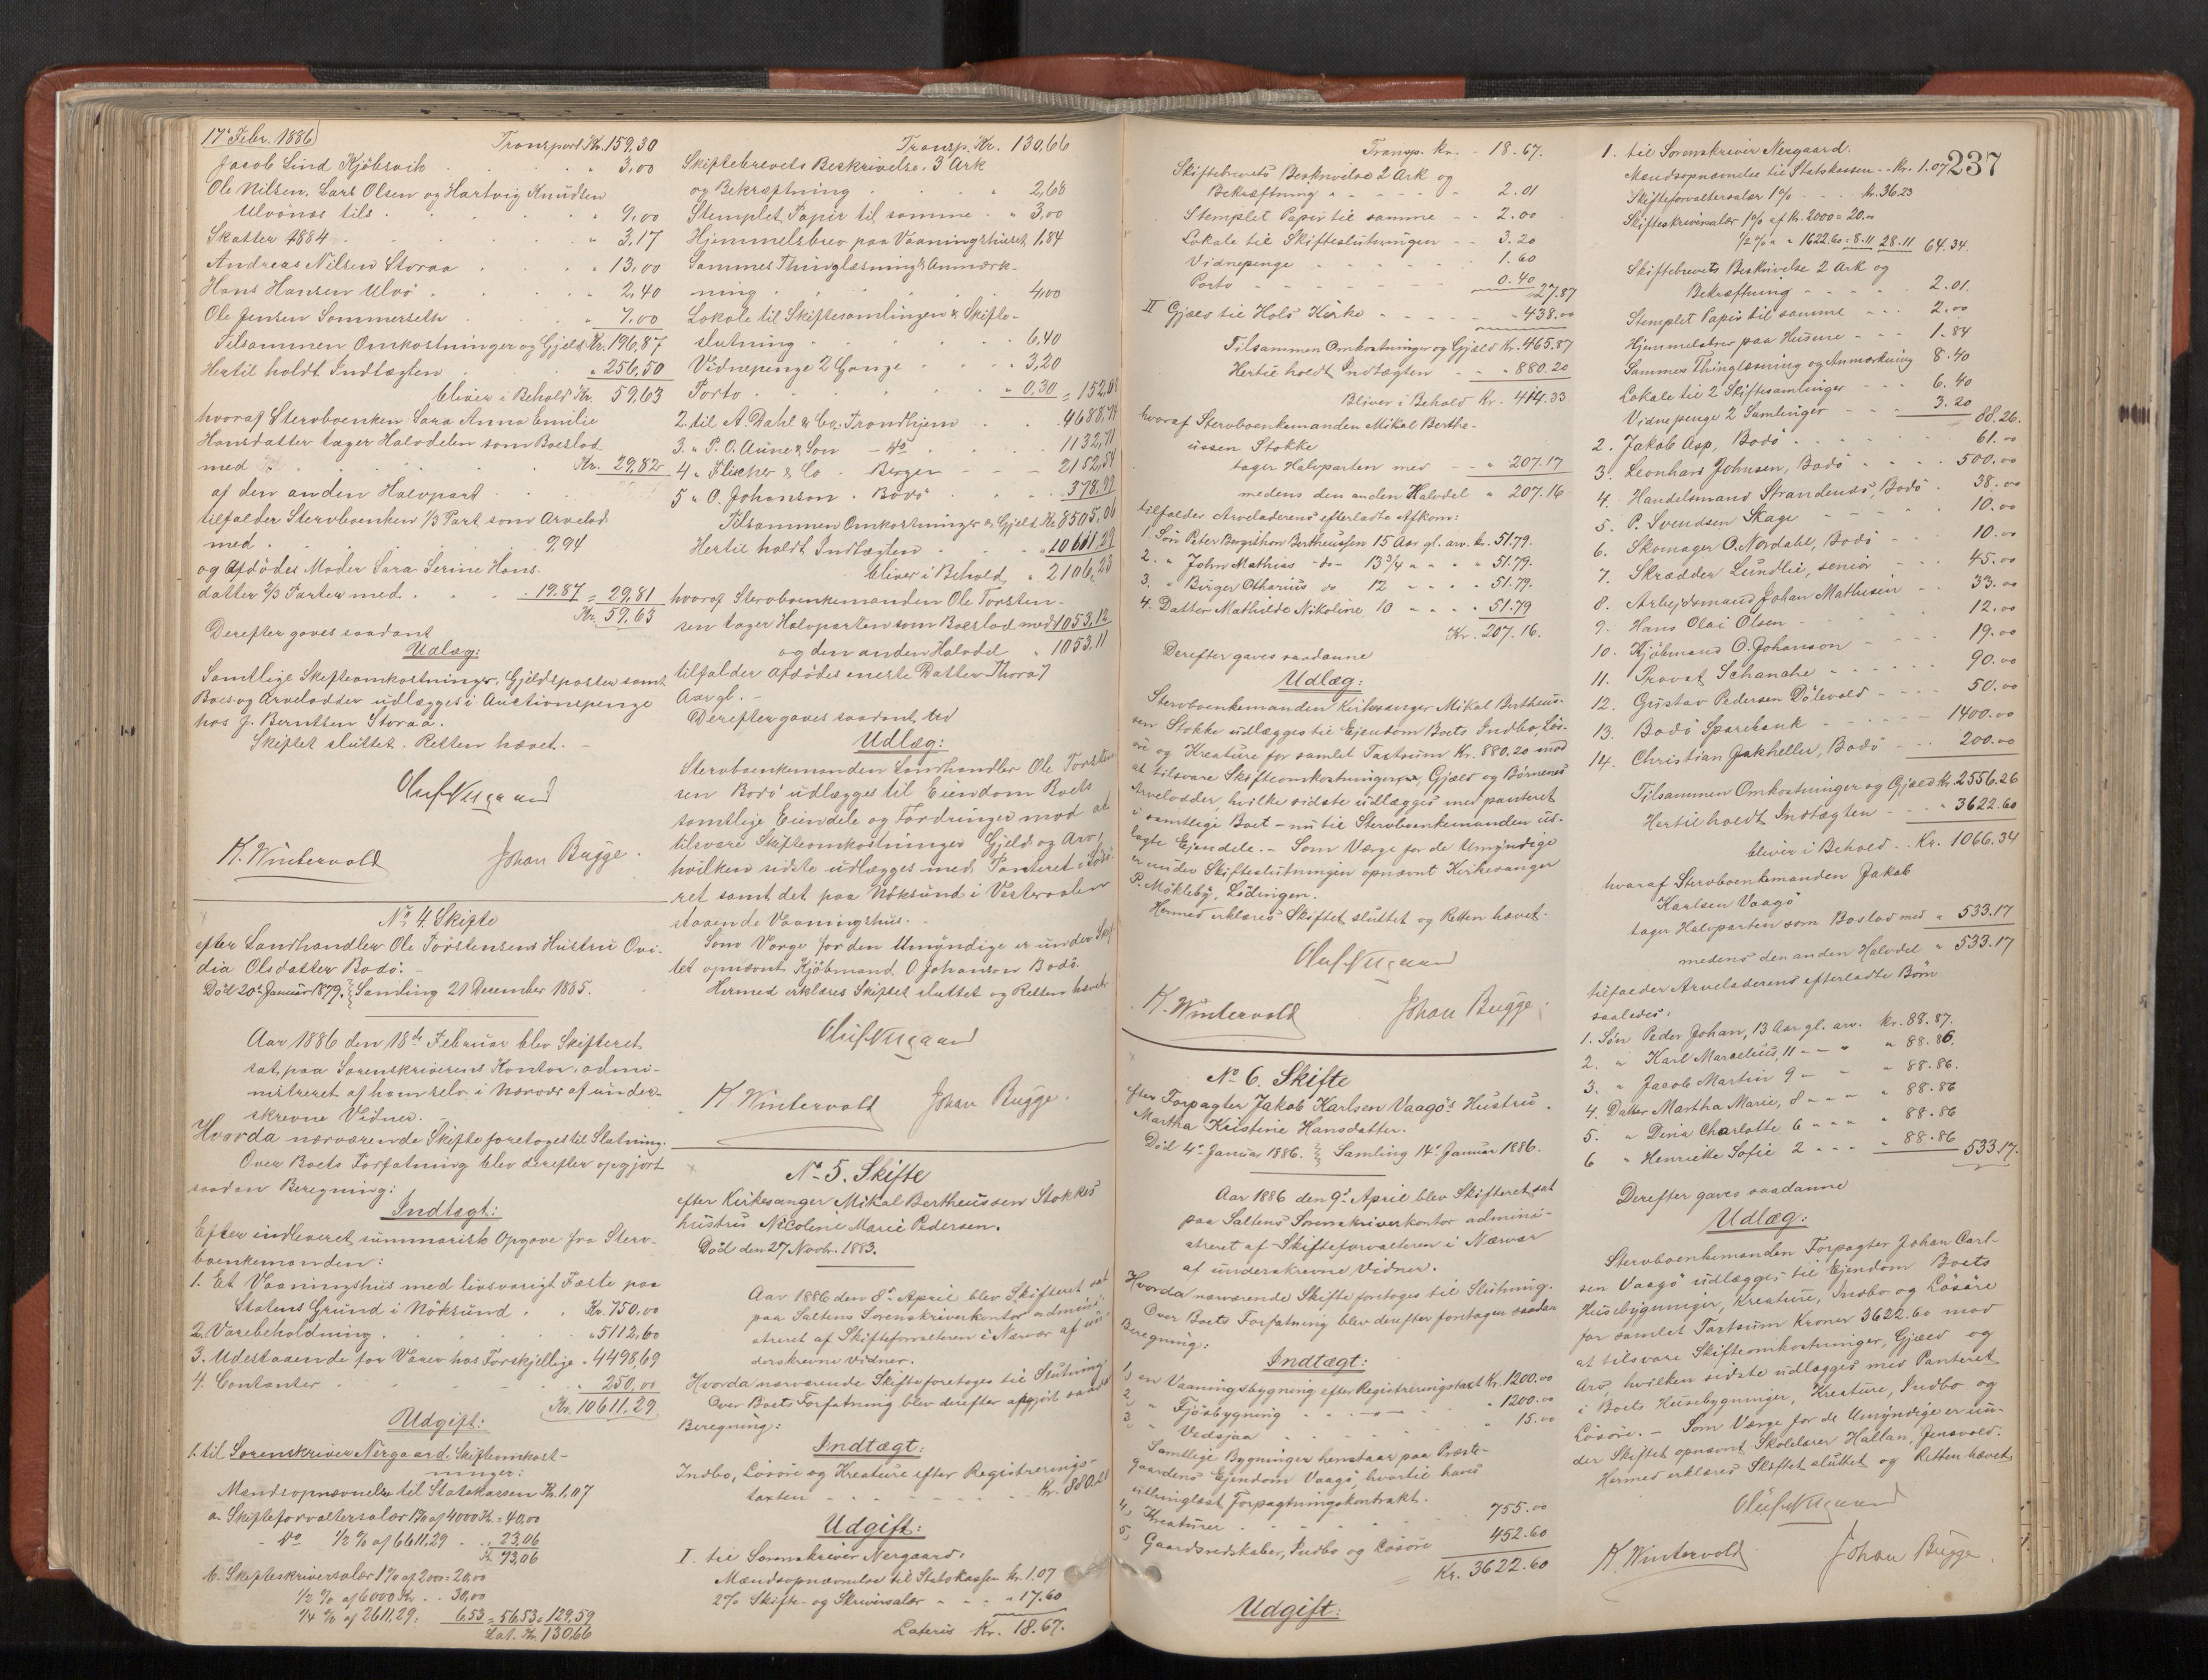 17' Febr. 1886
Transport Kr. 159,30
Jacob Lind Kjöbsvik . . " 3,00
Ole Nilsen, Lars Olsen og Hartvig Knudsen
Ulvönæs tils. . . . " 9,00
Skatter 1884 . . . " 3,17
Andreas Nilsen Storaa . . " 13,00
Hans Hansen Ulvö . . . " 2,40
Ole Jensen Sommerseth . . " 7,00
Tilsammen Omkostninger og Gjeld Kr. 196,87
Hertil holdt Indtægten . . " 256,50
bliver i Behold Kr. 59,63
hvoraf Stervboenken Sara Anna Emilie
Hansdatter tager Halvdelen som Boeslod
med . . . Kr. 29,82
af den anden Halvpart . . .
tilfalder Stervboenken 1/3 Part som Arvelod
med . . . 9,94
og Afdödes Moder Sara Serine Hans-
datter 2/3 Parter med . . . 19.87 = 29,81
Kr. 59,63
Derefter gaves saadant
Udlæg:
Samtlige Skifteomkostninger, Gjeldsposter samt
Boes og Arvelodder udlægges i Auctionspenge
hos J. Berntsen Storaa.
Skiftet sluttet. Retten hævet. —
Oluf Nergaard
K. Wintervold Johan Bugge.
No 4. Skifte
efter Landhandler Ole Torstensens Hustru Ovi-
dia Olsdatter Bodö. —
Död 20de Januar 1879. Samling 21 December 1885.
Aar 1886 den 18de Februar blev Skifteret
sat paa Sorenskriverens Kontor, admi-
nistreret af ham selv i Nærvær af under-
skrevne Vidner. —
Hvorda nærværende Skifte foretoges til Slutning.
Over Boets Forfatning blev derefter opgjort
saadan Beregning:
Indtægt:
Efter indleveret summarisk Opgave fra Sterv-
boenkemanden:
1. Et Vaaningshus med livsvarigt Fæste paa
Statens Grund i Nöksund . . Kr. 750,00
2. Varebeholdning . . . " 5112,60
3. Udestaaende for Varer hos Forskjellige " 4498,69
4. Contanter . . . " 250,00
Kr. 10611,29
Udgift:
1. til Sorenskriver Nergaard: Skifteomkost-
ninger:
Mandsopnævnelse til Statskassen Kr. 1,07
a. Skifteforvaltersalær 1% af 4000 Kr. = 40,00
do 1/2 % af 6611,29 . . 33,06
Kr. 73,06
b. Skifteskriversalær 1% af 2000 = 20,00
1/2 % af 6000 Kr. . . 30,00
1/4 % af 2611,29. 6,53 = 56,53 = 129,59
Lat. Kr. 130,66
Transp. Kr. 130,66
Skiftebrevets Beskrivelse. 3 Ark
og Bekræftning . . . " 2,68
Stemplet Papir til samme . " 3,00
Hjemmelsbrev paa Vaaningshuset 1,84
Sammes Thinglæsning & Anmærk-
ning . . . 4,00
Lokale til Skiftesamlingen & Skifte-
slutning . . . 6,40
Vidnepenge 2 Gange . . . 3,20
Porto . . . " 0,30 = 152,08
2. til A. Dahl & Co. Trondhjem . . 4688,94
3. " P. O. Aune & Son — do . . 1132,71
4 " Fischer & Co . Bergen — — 2152,54
5 " O. Johanson . Bodö . . . 378,99
Tilsammen Omkostninger & Gjeld Kr. 8505,06
Hertil holdt Indtægten . . " 10611,29
bliver i Behold " 2106,23
hvoraf Stervboenkemanden Ole Torsten-
sen tager Halvparten som Boeslod med 1053,12
og den anden Halvdel " 1053,11
tilfalder Afdödes eneste Datter Thora 7
Aar gl. —
Derefter gaves saadant ted
Udlæg:
Stervboenkemanden Landhandler Ole Torsten-
sen Bodö udlægges til Eiendom Boets
samtlige Eiendele og Fordringer mod at
tilsvare Skifteomkostninger Gjeld og Arv,
hvilken sidste udlægges med Panteret i Lösö-
ret samt det paa Nöksund i Vesteraalen
staaende Vaaningshus. —
Som Værge for den Umyndige er under Skif-
tet opnævnt Kjöbmand O Johanson Bodö.
Hermed erklæres Skiftet sluttet og Retten hævet
Oluf Nergaard
K Wintervold Johan Bugge.
No 5. Skifte
efter Kirkesanger Mikal Bertheussen Stokkes
hustru Nicoline Marie Pedersen.
Död den 27 Novbr. 1883.
Aar 1886 den 8de April blev Skifteret sat
paa Saltens Sorenskriverkontor admini-
streret af Skifteforvalteren i Nærvær af un-
derskrevne Vidner.
Hvorda nærværende Skifte foretoges til Slutning.
Over Boets Forfatning blev derefter opgjört saadan
Beregning:
Indtægt:
Indbo, Lösöre og Kreature efter Registrerings-
taxten . . . Kr. 880.20
Udgift:
I. til Sorenskriver Nergaard:
Mændsopnævnelse til Statskassen Kr. 1.07
2% Skifte- og Skriversalær . . " 17.60
Lateris Kr. 18.67.
Transp. Kr. . 18.67.
Skiftebrevets Beskrivelse 2 Ark og
Bekræftning . . . 2.01
Stemplet Papir til samme . . 2.00
Lokale til Skifteslutningen . . 3.20
Vidnepenge . . . 1.60
Porto . . . 0.40 27.87
II Gjæld til Hols Kirke . . . 438.00
Tilsammen Omkostninger og Gjæld Kr. 465.87
Hertil holdt Indtægten . . " 880.20
Bliver i Behold Kr. 414.33
hvoraf Stervboenkemanden Mikal Berthe-
ussen Stokke
tager Halvparten med . . " 207.17
medens den anden Halvdel " 207.16
tilfalder Arveladerens efterladte Afkom:
1. Sön Peter Bergithon Bertheussen 15 Aar gl. arv. kr. 51.79.
2. " John Mathias do 13 3/4 " " " 51.79.
3. " Birger Otharius do 12 " " " 51.79.
4. Datter Mathilde Nikoline 10 " " " 51.79
Kr. 207.16.
Derefter gaves saadanne
Udlæg:
Stervboenkemanden Kirkesanger Mikal Bertheus-
sen Stokke udlægges til Ejendom Boets Indbo, Lös-
öre og Kreature for samlet Taxtsum Kr. 880.20 mod
at tilsvare Skifteomkostninger, Gjæld og Børnenes
Arvelodder, hvilke sidste udlægges med panteret
i samtlige Boet - nu til Stervboenkemanden ud-
lagte Ejendele. — Som Værge for de Umyndige
er under Skifteslutningen opnævnt Kirkesanger
P. Mökleby, Lödingen.
Hermed erklæres Skiftet sluttet og Retten hævet.
Oluf Nergaard
K. Wintervold Johan Bugge.
No 6. Skifte
efter Forpagter Jakob Karlsen Vaagö's Hustru.
Martha Kristine Hansdatter.
Död 4de Januar 1886. Samling 14de Januar 1886.
Aar 1886 den 9de April blev Skifteret sat
paa Saltens Sorenskriverkontor admini-
streret af Skifteforvalteren i Nærvær
af underskrevne Vidner.
Hvorda nærværende Skifte foretoges til Slutning.
Over Boets Forfatning blev derefter foretagen saadan
Beregning:
Indtægt:
1) en Vaaningsbygning efter Registreringstaxt Kr. 1200.00
2) " Fjösbygning . . . " 1200.00
3) " Vedsjaa . . . " 15.00
Samtlige Bygninger henstaar paa Præste-
gaardens Ejendom Vaagö, hvortil haves
uthinglæst Forpagtningskontrakt.
4) Kreaturer . . . 755.00
5) Gaardsredskaber, Indbo og Lösöre 452.60
Kr. 3622.60
Udgift:
237
1. til Sorenskriver Nergaard.
Mændsopnævnelse til Statskassen . . Kr. 1.07
Skifteforvaltersalær 1% . . kr. 36.23
Skifteskriversalær 1% af Kr. 2000 = 20.00
1/2 % " " 1622.60 = 8.11 28.11 64.34.
Skiftebrevets Beskrivelse 2 Ark og
Bekræftning . . . 2.01.
Stemplet Papir til samme . . . 2.00
Hjemmelsbrev paa Husene . . 1.84
Sammes Thinglæsning og Anmærkning 8.40
Lokale til 2 Skiftesamlinger . . . 6.40
Vidnepenge 2 Samlinger . . . 3.20 88.26.
2. Jakob Asp, Bodö . . . 61.00
3. Leonhard Johnsen, Bodö . . . 500.00
4. Handelsmand Strandenes, Bodö . 38.00
5. P. Svendsen Skage . . . 10.00
6. Skomager O. Nordahl, Bodö . . 10.00
7. Skrædder Lundlie, senior . . . 45.00
8. Arbejdsmand Johan Mathisen . . 33.00
9. Hans Olai Olsen . . . 12.00
10. Kjöbmand O. Johanson . . . 19.00
11. Provst Schanche . . . 90.00
12. Gustav Pedersen Dölevold . . . 50.00
13. Bodö Sparebank . . . 1400.00
14. Christian Jakhelln, Bodö . . 200.00
Tilsammen Omkostninger og Gjæld Kr. 2556.26
Hertil holdt Indtægten . . " 3622.60
bliver i Behold . . Kr. 1066.34
hvoraf Stervboenkemanden Jakob
Karlsen Vaagö
tager Halvparten som Boslod med " 533.17
medens den anden Halvdel " 533.17
tilfalder Arveladerens efterladte Børn
saaledes:
1. Sön Peder Johan, 13 Aar gl. arv. kr. 88.87.
2. " Karl Marcelius, 11 " " " 88.86.
3. " Jacob Martin 9 " " " 88.86.
4. Datter Martha Marie, 8 " " " 88.86
5. " Dina Charlotte 6 " " " 88.86
6 " Henriette Sofie 2 " " " 88.86 533.17.
Derefter gaves saadanne
Udlæg:
Stervboenkemanden Forpagter Johan Carl-
sen Vaagö udlægges til Ejendom Boets
Husebygninger, Kreature, Indbo og Lösöre
for samlet Taxtsum Kroner 3622.60 mod
at tilsvare Skifteomkostninger, Gjæld og
Arv, hvilken sidste udlægges med Panteret
i Boets Husebygninger, Kreature, Indbo og
Lösöre. — Som Værge for de Umyndige er un-
der Skiftet opnævnt Skolelærer Hallan, Jensvold.
Hermed erklæres Skiftet sluttet og Retten hævet.
Oluf Nergaard
K. Wintervold Johan Bugge.